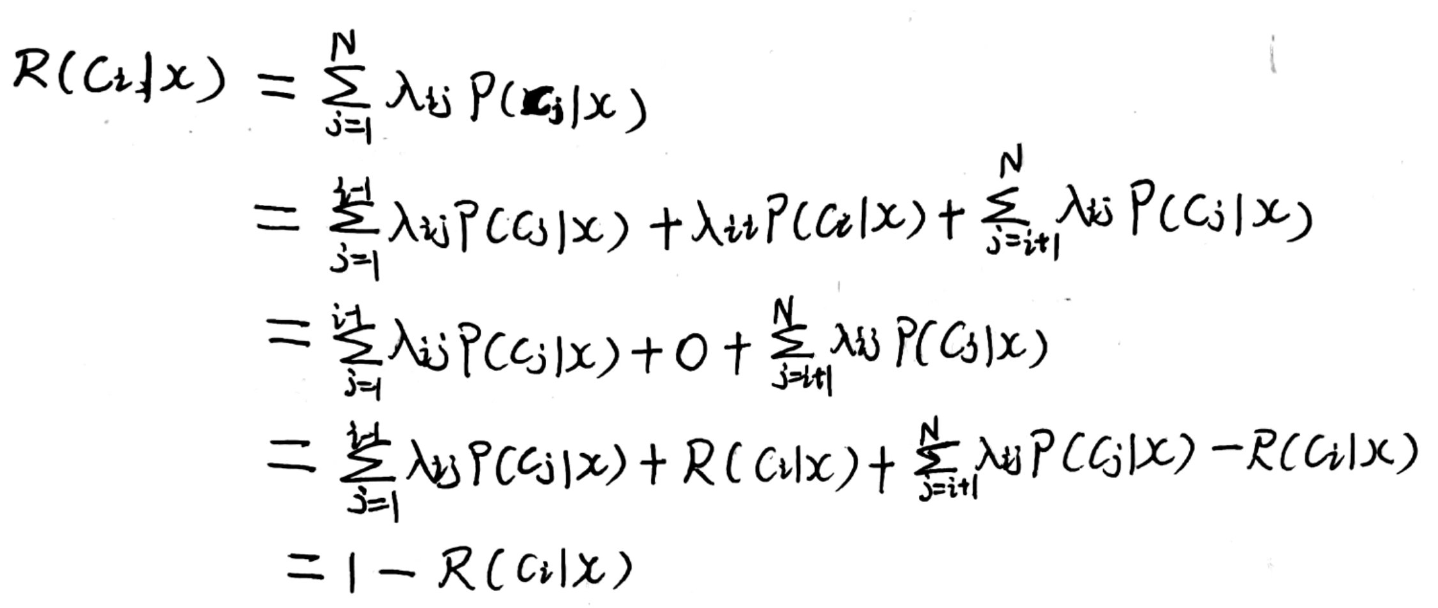 R(Ci|x) = ∑_{j=1}^{N} λij P(Cj|x)
= ∑_{j=1}^{i-1} λij P(Cj|x) + λii P(Ci|x) + ∑_{j=i+1}^{N} λij P(Cj|x)
= ∑_{j=1}^{i-1} λij P(Cj|x) + 0 + ∑_{j=i+1}^{N} λij P(Cj|x)
= ∑_{j=1}^{i-1} λij P(Cj|x) + R(Ci|x) + ∑_{j=i+1}^{N} λij P(Cj|x) - R(Ci|x)
= 1 - R(Ci|x)